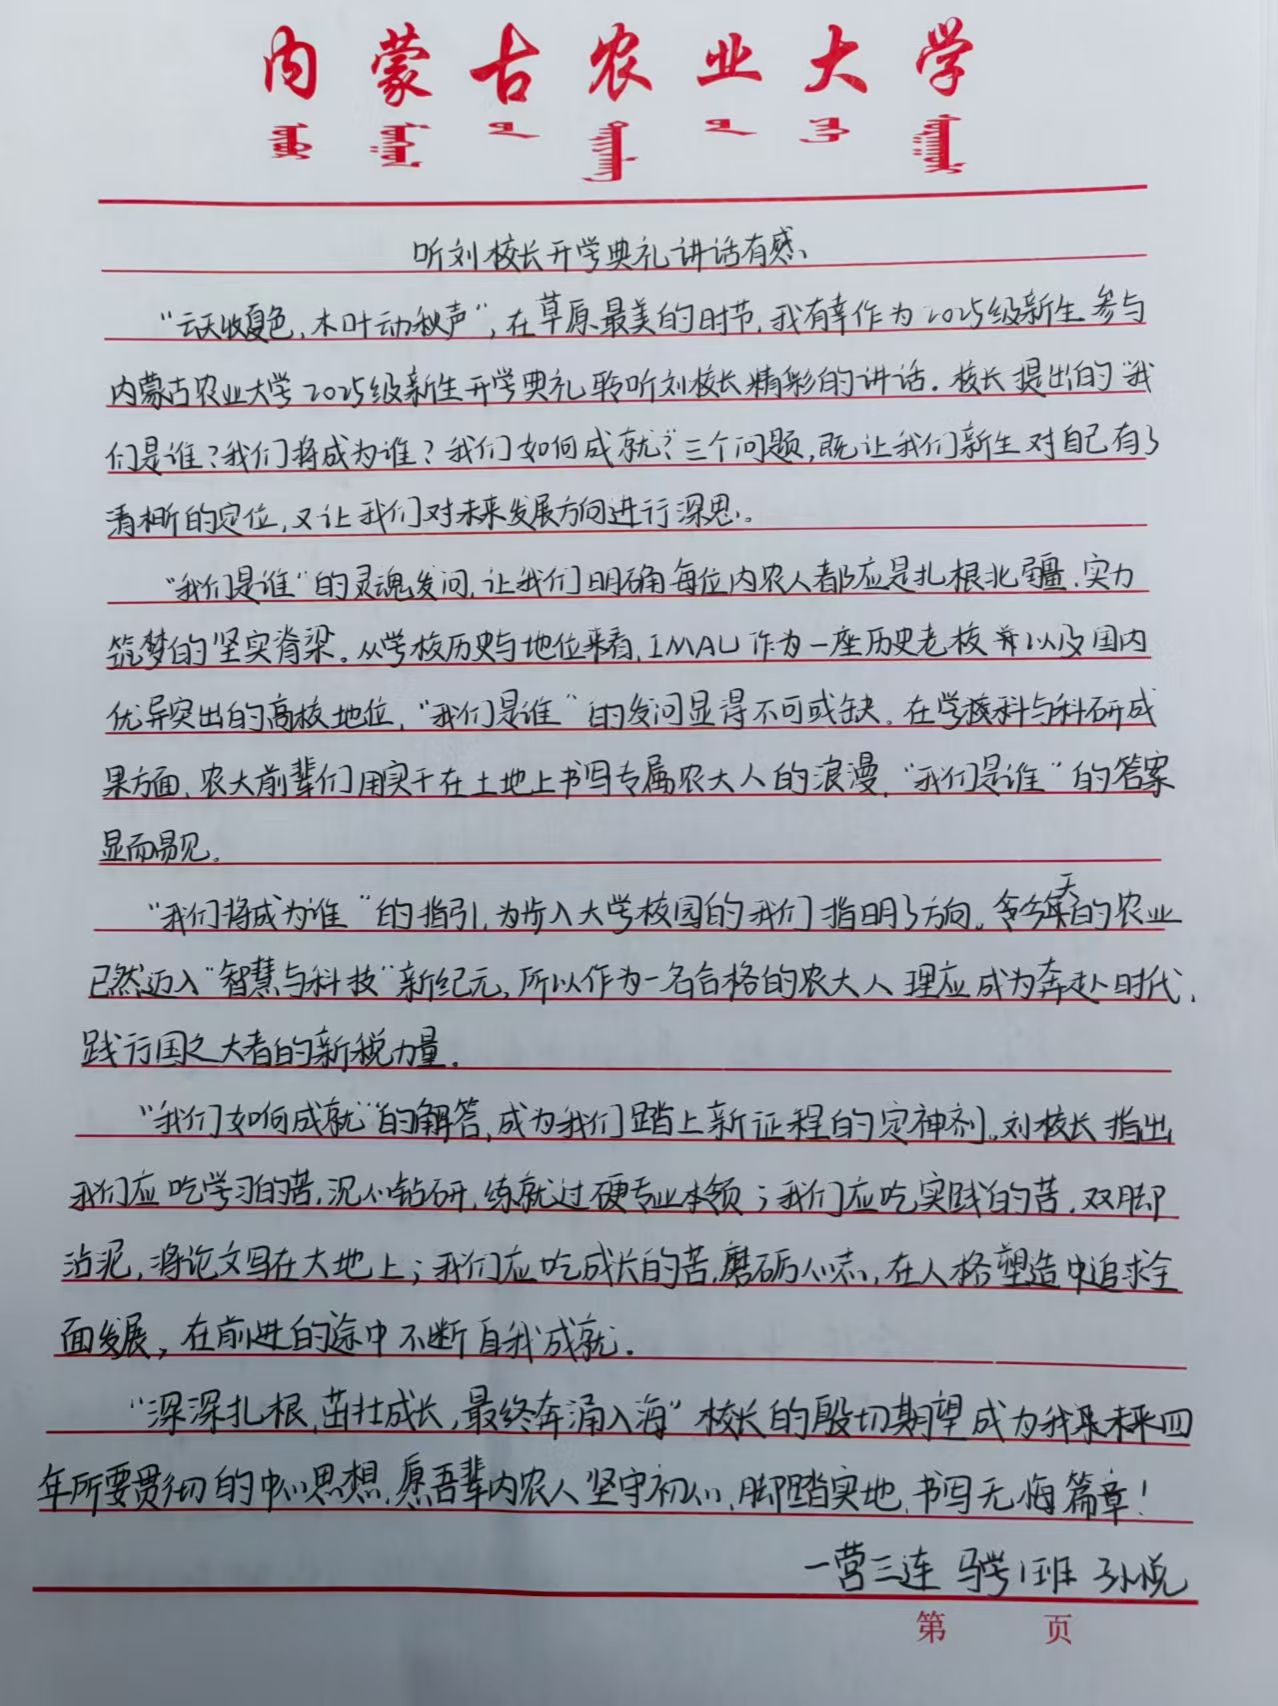 内蒙古农业大学
听刘校长开学典礼讲话有感
“云天收夏色,木叶动秋声”,在草原最美的时节,我有幸作为2025级新生参与
内蒙古农业大学2025级新生开学典礼聆听刘校长精彩的讲话。校长提出的“我
们是谁?我们将成为谁?我们如何成就?”三个问题,既让我们新生对自己有了
清晰的定位,又让我们对未来发展方向进行深思。
“我们是谁”的灵魂发问,让我们明确每位内农人都应是扎根北疆、实力
筑梦的坚实脊梁。从学校历史与地位来看,IMAU作为一座历史老校并以及国内
优异突出的高校地位,“我们是谁”的发问显得不可或缺。在学科与科研成
果方面,农大前辈们用实干在土地上书写专属农大人的浪漫,“我们是谁”的答案
显而易见。
“我们将成为谁”的指引,为步入大学校园的我们指明了方向。今天的农业
已然迈入“智慧与科技”新纪元,所以作为一名合格的农大人理应成为奔赴时代、
践行国之大者的新锐力量。
“我们如何成就”的解答,成为我们踏上新征程的定神剂。刘校长指出
我们应吃学习的苦,沉心钻研,练就过硬专业本领;我们应吃实践的苦,双脚
沾泥,将论文写在大地上;我们应吃成长的苦,磨砺心志,在人格塑造中追求全
面发展,在前进的途中不断自我成就。
“深深扎根,茁壮成长,最终奔涌入海”校长的殷切期望成为我未来四
年所要贯彻的中心思想,愿吾辈内农人坚守初心、脚踏实地、书写无悔篇章!
一营三连 班 孙悦
第 页